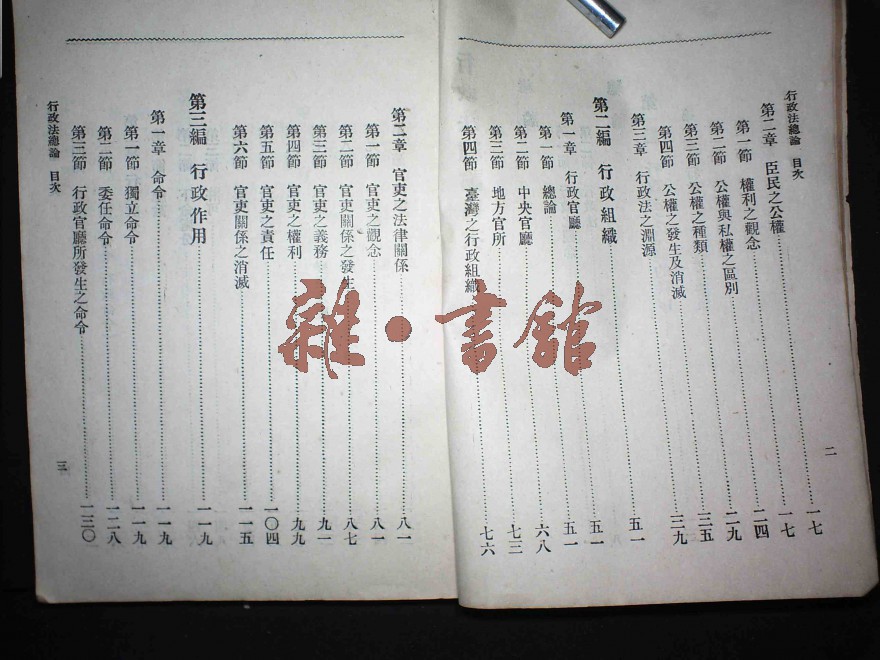 行政法總論 目次
二
第二章 臣民之公權……一七
第一節 權利之觀念……一七
第二節 公權與私權之區別……二四
第三節 公權之種類……二九
第四節 公權之發生及消滅……三五
第三章 行政法之淵源……三九
第二編 行政組織……五一
第一章 行政官廳……五一
第一節 總論……五一
第二節 中央官廳……六八
第三節 地方官所……七三
第四節 臺灣之行政組織……七六
第二章 官吏之法律關係……八一
第一節 官吏之觀念……八一
第二節 官吏關係之發生……八七
第三節 官吏之義務……九一
第四節 官吏之權利……九九
第五節 官吏之責任……一〇四
第六節 官吏關係之消滅……一一五
第三編 行政作用……一一九
第一章 命令……一一九
第一節 獨立命令……一一九
第二節 委任命令……一二八
第三節 行政官廳所發生之命令……一三〇
行政法總論 目次
三
雜·書館